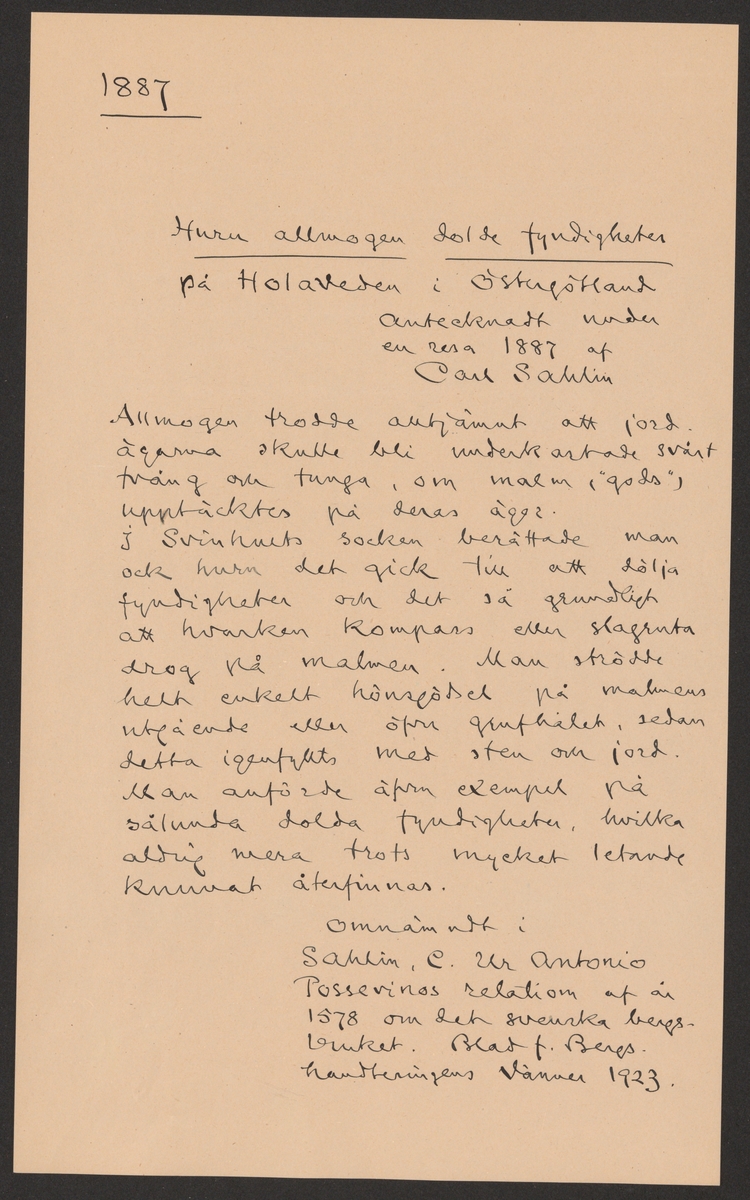 1887
Huru allmogen dolde fyndigheter
på Holaveden i Östergötland
Antecknadt under
en resa 1887 af
Carl Sahlin
Allmogen trodde alltjämnt att jord-
ägarna skulle bli underkastade svårt
tvång och tunga, om malm ("gods")
upptäcktes på deras ägor.
I Svinhults socken berättade man
ock huru det gick till att dölja
fyndigheter och det så grundligt
att hvarken kompass eller slagruta
drog på malmen. Man strödde
helt enkelt hönsgödsel på malmens
utgående eller öfver grufhålet, sedan
detta igenfyllts med sten och jord.
Man anförde äfven exempel på
sålunda dolda fyndigheter, hvilka
aldrig mera trots mycket letande
kunnat återfinnas.
Omnämndt i
Sahlin, C. Ur Antonio
Possevinos relation af år
1578 om det svenska bergs-
bruket. Blad f. Bergs-
handteringens Vänner 1923.